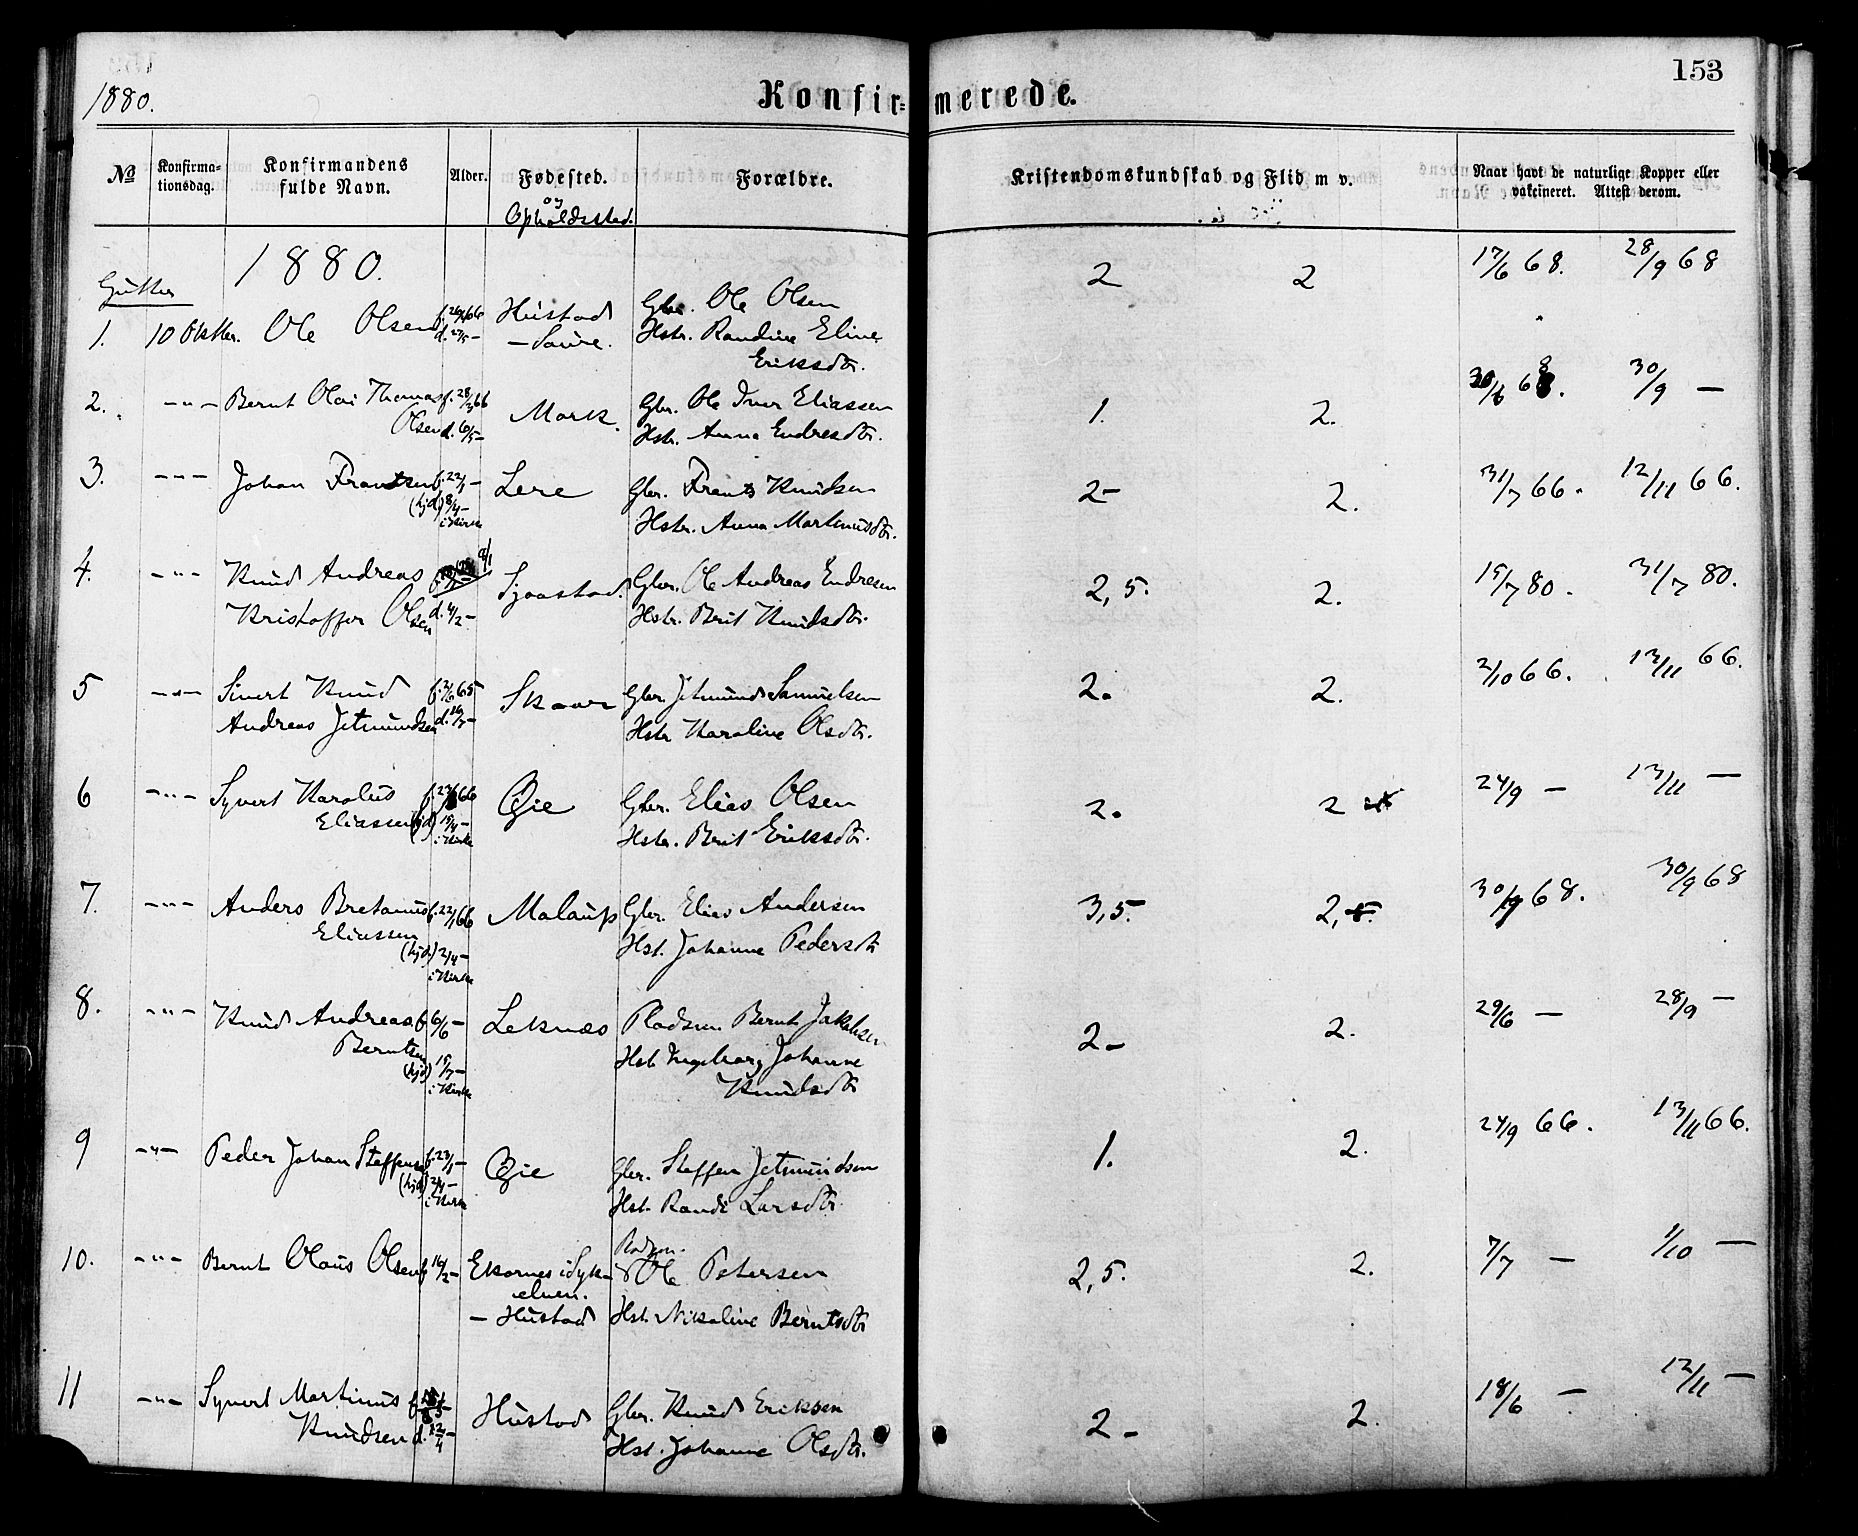 153
1880.
Konfir= merede.
№
Konfirma-
tionsdag.
Konfirmandens
fulde Navn.
Alder.
Fødested.
og
Opholdssted.
Forældre.
Kristendomskundskab og Flid m v.
Naar havt de naturlige Kopper eller
vakcineret. Attest derom.
1880.
Gutter
1. 10 Oktbr. Ole Olsen Hustad Gbr. Ole Olsen 2 2 17/6 68. 28/9 68
d. 27/5 – – Saure. Hstr. Randine Eline
Eriksdtr.
2. – " – Bernt Olai Thomas f. 28/3 66 Mork. Gbr. Ole Iver Eliassen 1. 2. 30/6 68. 30/9 –
Olsen d. 6/5 – Hstr. Anna Endresdtr.
3. – " – Johan Frantsen f. 22/1 – Lere Gbr. Frants Knudsen 2 – 2. 31/7 66. 12/11 66.
(hjd) 8/4 – Hstr. Anna Martinusdtr.
i Kirke
4. – " – Knud Andreas Sjaastad. Gbr. Ole Andreas Endresen 2,5. 2. 15/7 80. 31/7 80.
Kristoffer Olsen d. 4/2 – Hstr. Brit Knudsdtr.
5 – " – Sivert Knud f. 2/6 65 Skaar Gbr. Jetmund Samuelsen 2. 2. 2/10 66. 12/11 66.
Andreas Jetmundsen d. 16/7 – Hstr Karoline Olsdtr.
6 – " – Syvert Karolus Øie Gbr. Elias Olsen 2. 2 24/9 – 13/11 –
Eliassen (hjd) 15/4 – Hstr. Brit Eriksdtr.
i Kirke
7. – " – Anders Bretanus f. 22/1 66 Malaup Gbr. Elias Andersen 3,5. 2,5. 30/9 68. 30/9 68
Eliassen Hst. Johanne Pedersdtr
(hjd.) 2/4 –
i Kirke
8. – " – Knud Andreas f. 6/6 – Leknæs Pladsm Bernt Jakobsen 2 – 2. 29/6 – 28/9 –
Berntsen Hst. Ingeborg Johanne
(hjd) 15/7 – Knudsdtr
i Kirke
9 – " – Peder Johan Steffensen f. 23/1 – Øie Gbr. Steffen Jetmundsen 1. 2. 24/9 66. 13/11 66.
(hjd) 2/4 – Hst. Randi Larsdtr.
i Kirke
Pladsm.
10. – " – Bernt Olaus Olsen f. 14/2 – Ekornes i Syk- Ole Petersen 2,5. 2. 7/7 – 1/10 –
elven.
– Hustad Hst. Nikoline Berntsdtr
11 – " – Syvert Martinus Hustad Gbr. Knud Eriksen 2 – 2. 18/6 – 12/11 –
Knudsen d. 22/4 – Hst. Johanne Olsdtr.